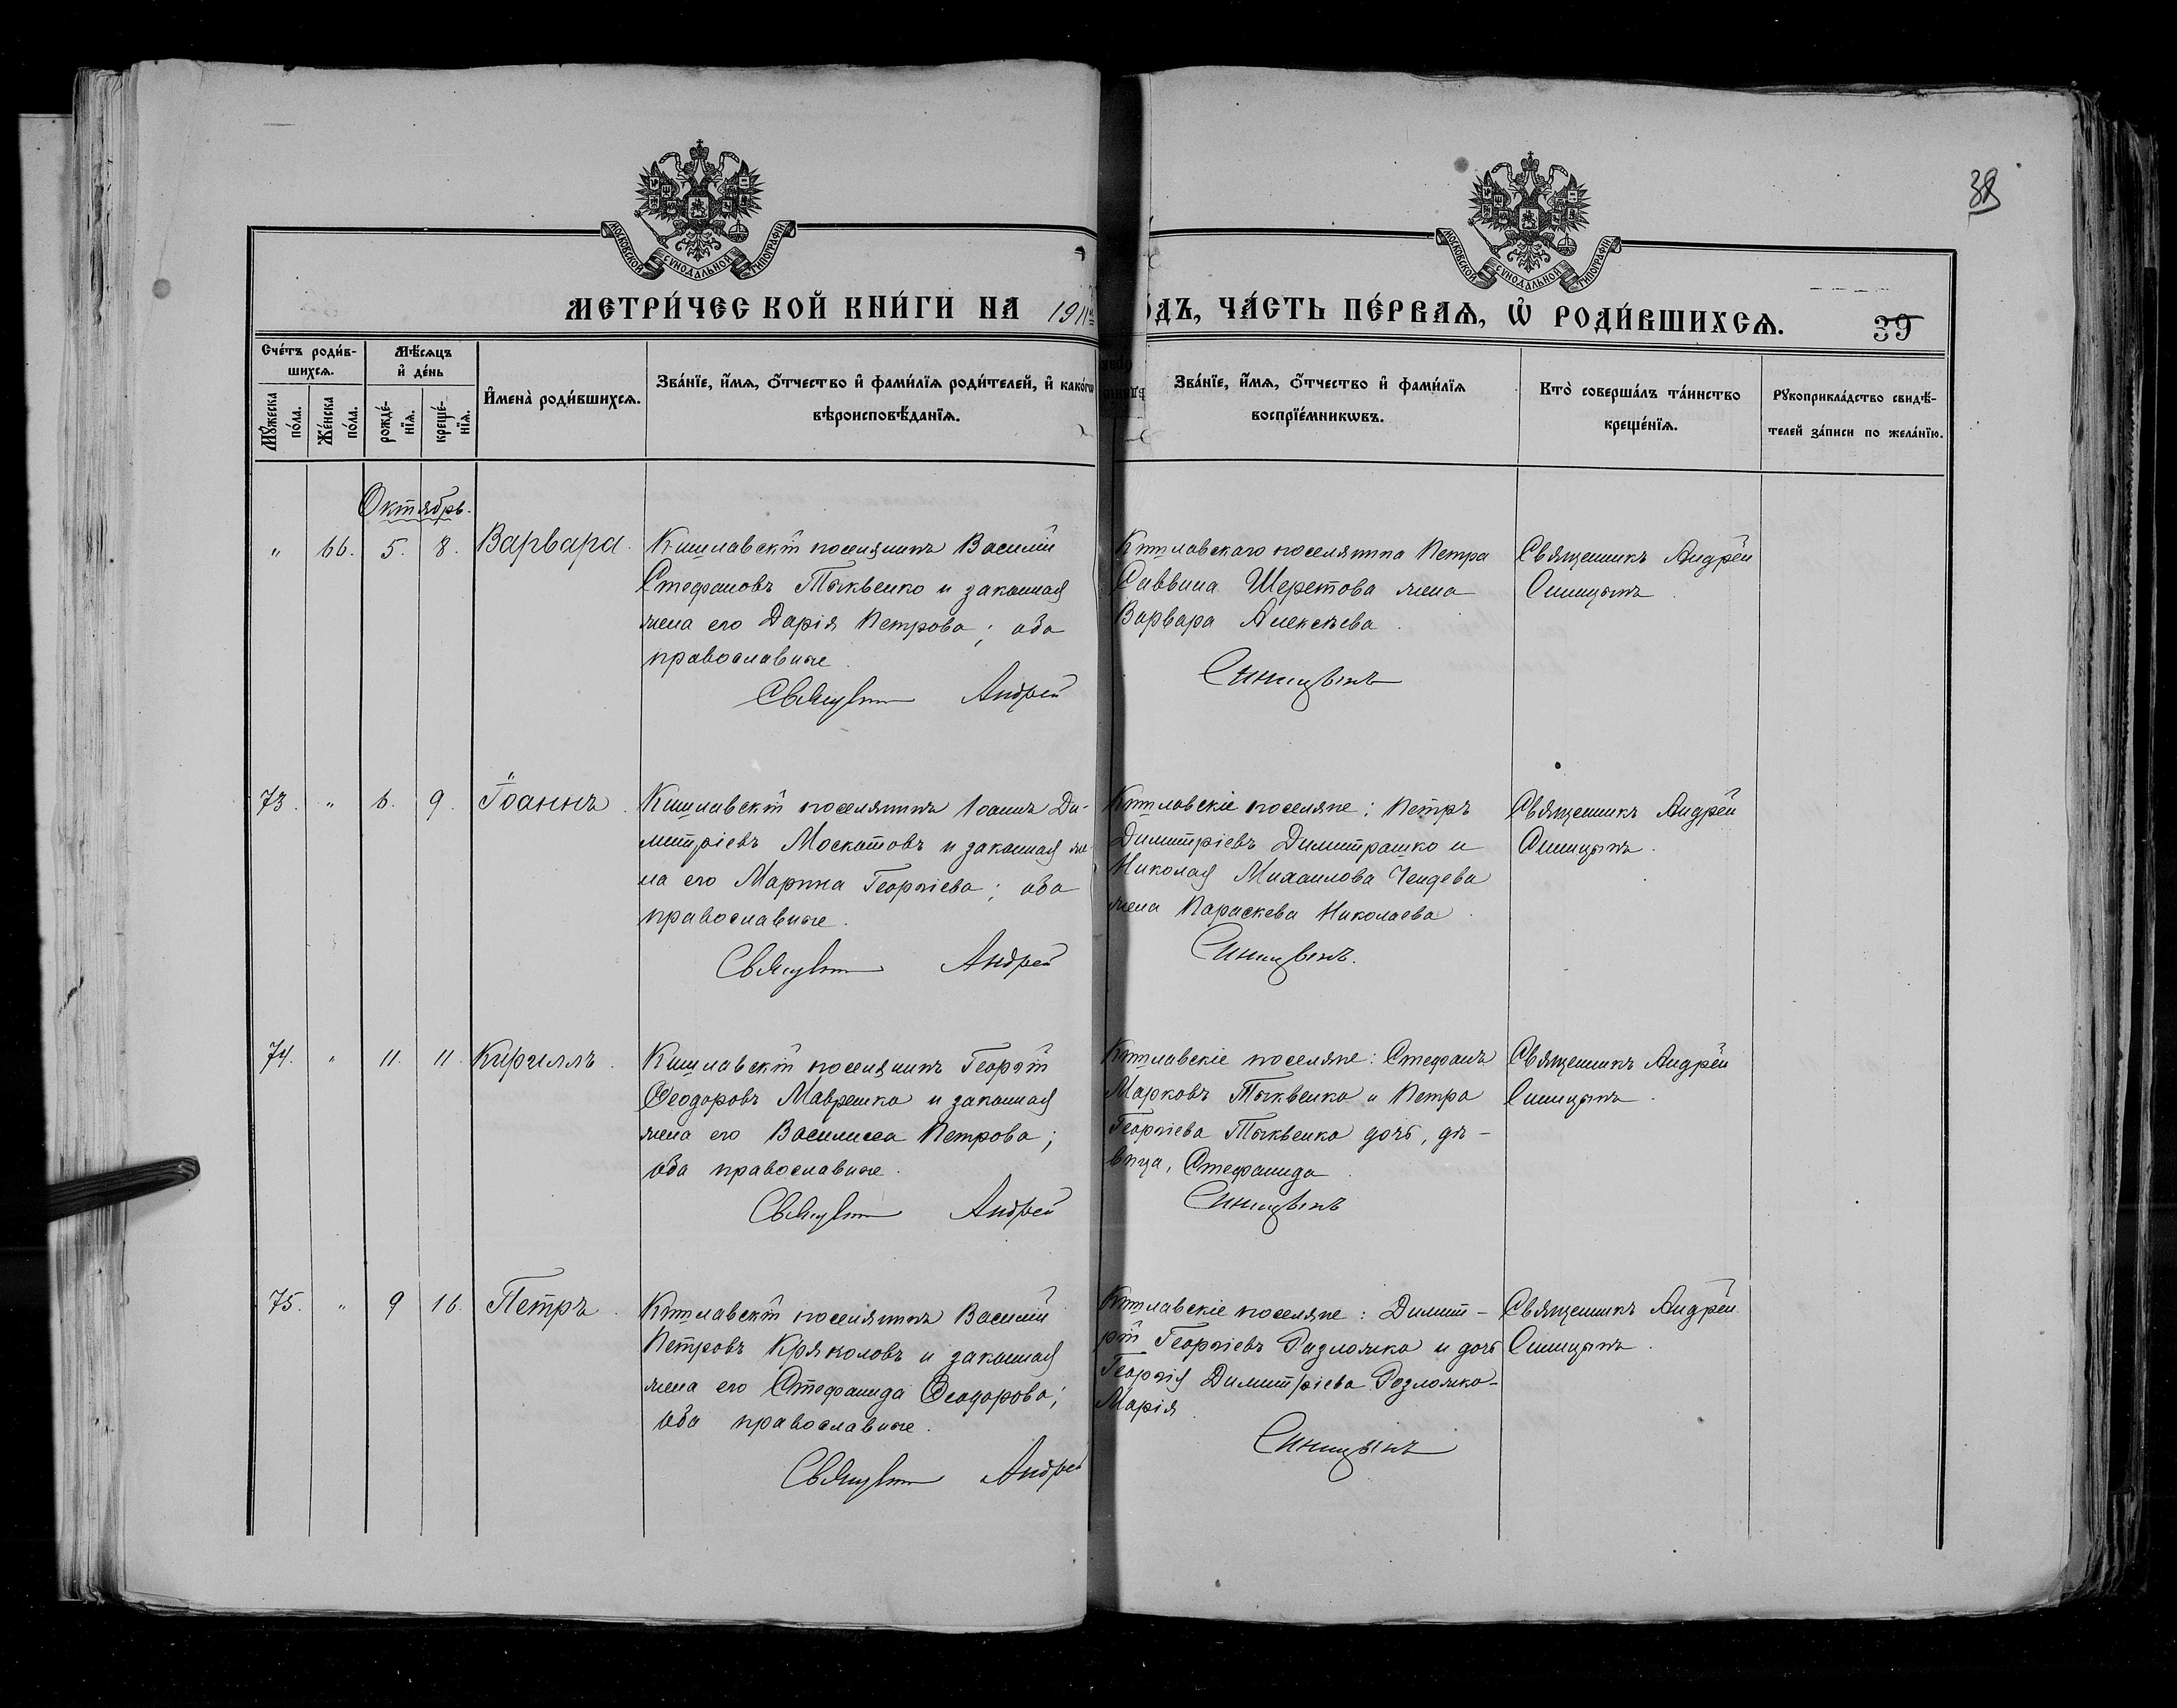 38
МОСКОВСКОЙ СУНОДАЛЬНОЙ ТИПОГРАФІИ
МОСКОВСКОЙ СУНОДАЛЬНОЙ ТИПОГРАФІИ
МЕТРИ́ЧЕСКОЙ КНИ́ГИ НА 1911й
ОДЪ, ЧА́СТЬ ПЕ́РВАѦ, Ѡ РОДИ́ВШИХСѦ.
39
Сче́тъ роди́в-
шихсѧ.
Мѣ́сѧцъ
и҆ де́нь
Мꙋ́жеска
по́ла.
Же́нска
по́ла.
рожде́-
нїѧ.
креще́-
нїѧ.
И҆мена̀ роди́вшихсѧ.
Зва́нїе, и҆́мѧ, ѻ҆́тчество и҆ фами́лїѧ роди́телей, и҆ како́гѡ
вѣроисповѣ́данїѧ.
Зва́нїе, и҆́мѧ, ѻ҆́тчество и҆ фами́лїѧ
воспрїе́мникѡвъ.
Кто̀ соверша́лъ та́инство
креще́нїѧ.
Рꙋкоприкла́дство свидѣ́-
телей за́писи по жела́нїю.
Октябрь.
" 66. 5. 8. Варвара.
Кишлавскій поселянинъ Василій
Стефановъ Тыквенко и законная
жена его Дарія Петрова; оба
православные.
Священникъ Андрей
Кишлавскаго поселянина Петра
Саввина Шеретова жена
Варвара Алексѣева.
Синицынъ
Священникъ Андрей
Синицынъ.
73. " 6. 9. Іоаннъ.
Кишлавскій поселянинъ Іоаннъ Ди-
митріевъ Москатовъ и законная же-
на его Марина Георгіева; оба
православные.
Священникъ Андрей
Кишлавскіе поселяне: Петръ
Димитріевъ Димитрашко и
Николая Михаилова Чендева
жена Параскева Николаева.
Синицынъ.
Священникъ Андрей
Синицынъ.
74. " 11. 11. Кириллъ.
Кишлавскій поселянинъ Георгій
Ѳеодоровъ Маврешко и законная
жена его Василисса Петрова;
оба православные.
Священникъ Андрей
Кишлавскіе поселяне: Стефанъ
Марковъ Тыквенко и Петра
Георгіева Тыквенко дочь, дѣ-
вица, Стефанида.
Синицынъ
Священникъ Андрей
Синицынъ.
75. " 9 16. Петръ.
Кишлавскій поселянинъ Василій
Петровъ Кряколовъ и законная
жена его Стефанида Ѳеодорова;
оба православные.
Священникъ Андрей
Кишлавскіе поселяне: Димит-
рій Георгіевъ Розложко и дочь
Георгія Димитріева Розложко-
Марія.
Синицынъ
Священникъ Андрей
Синицынъ.